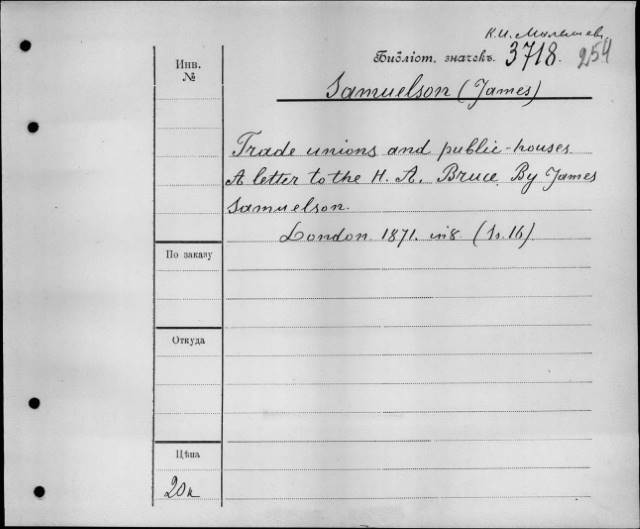 К.И.
Библіот. значекъ. 3718. 254
Инв.
№
Samuelson (James)
Trade unions and public-houses.
A letter to the H. A. Bruce. By James
Samuelson.
London. 1871. in8. (1s. 16).
По заказу
Откуда
Цѣна
20к